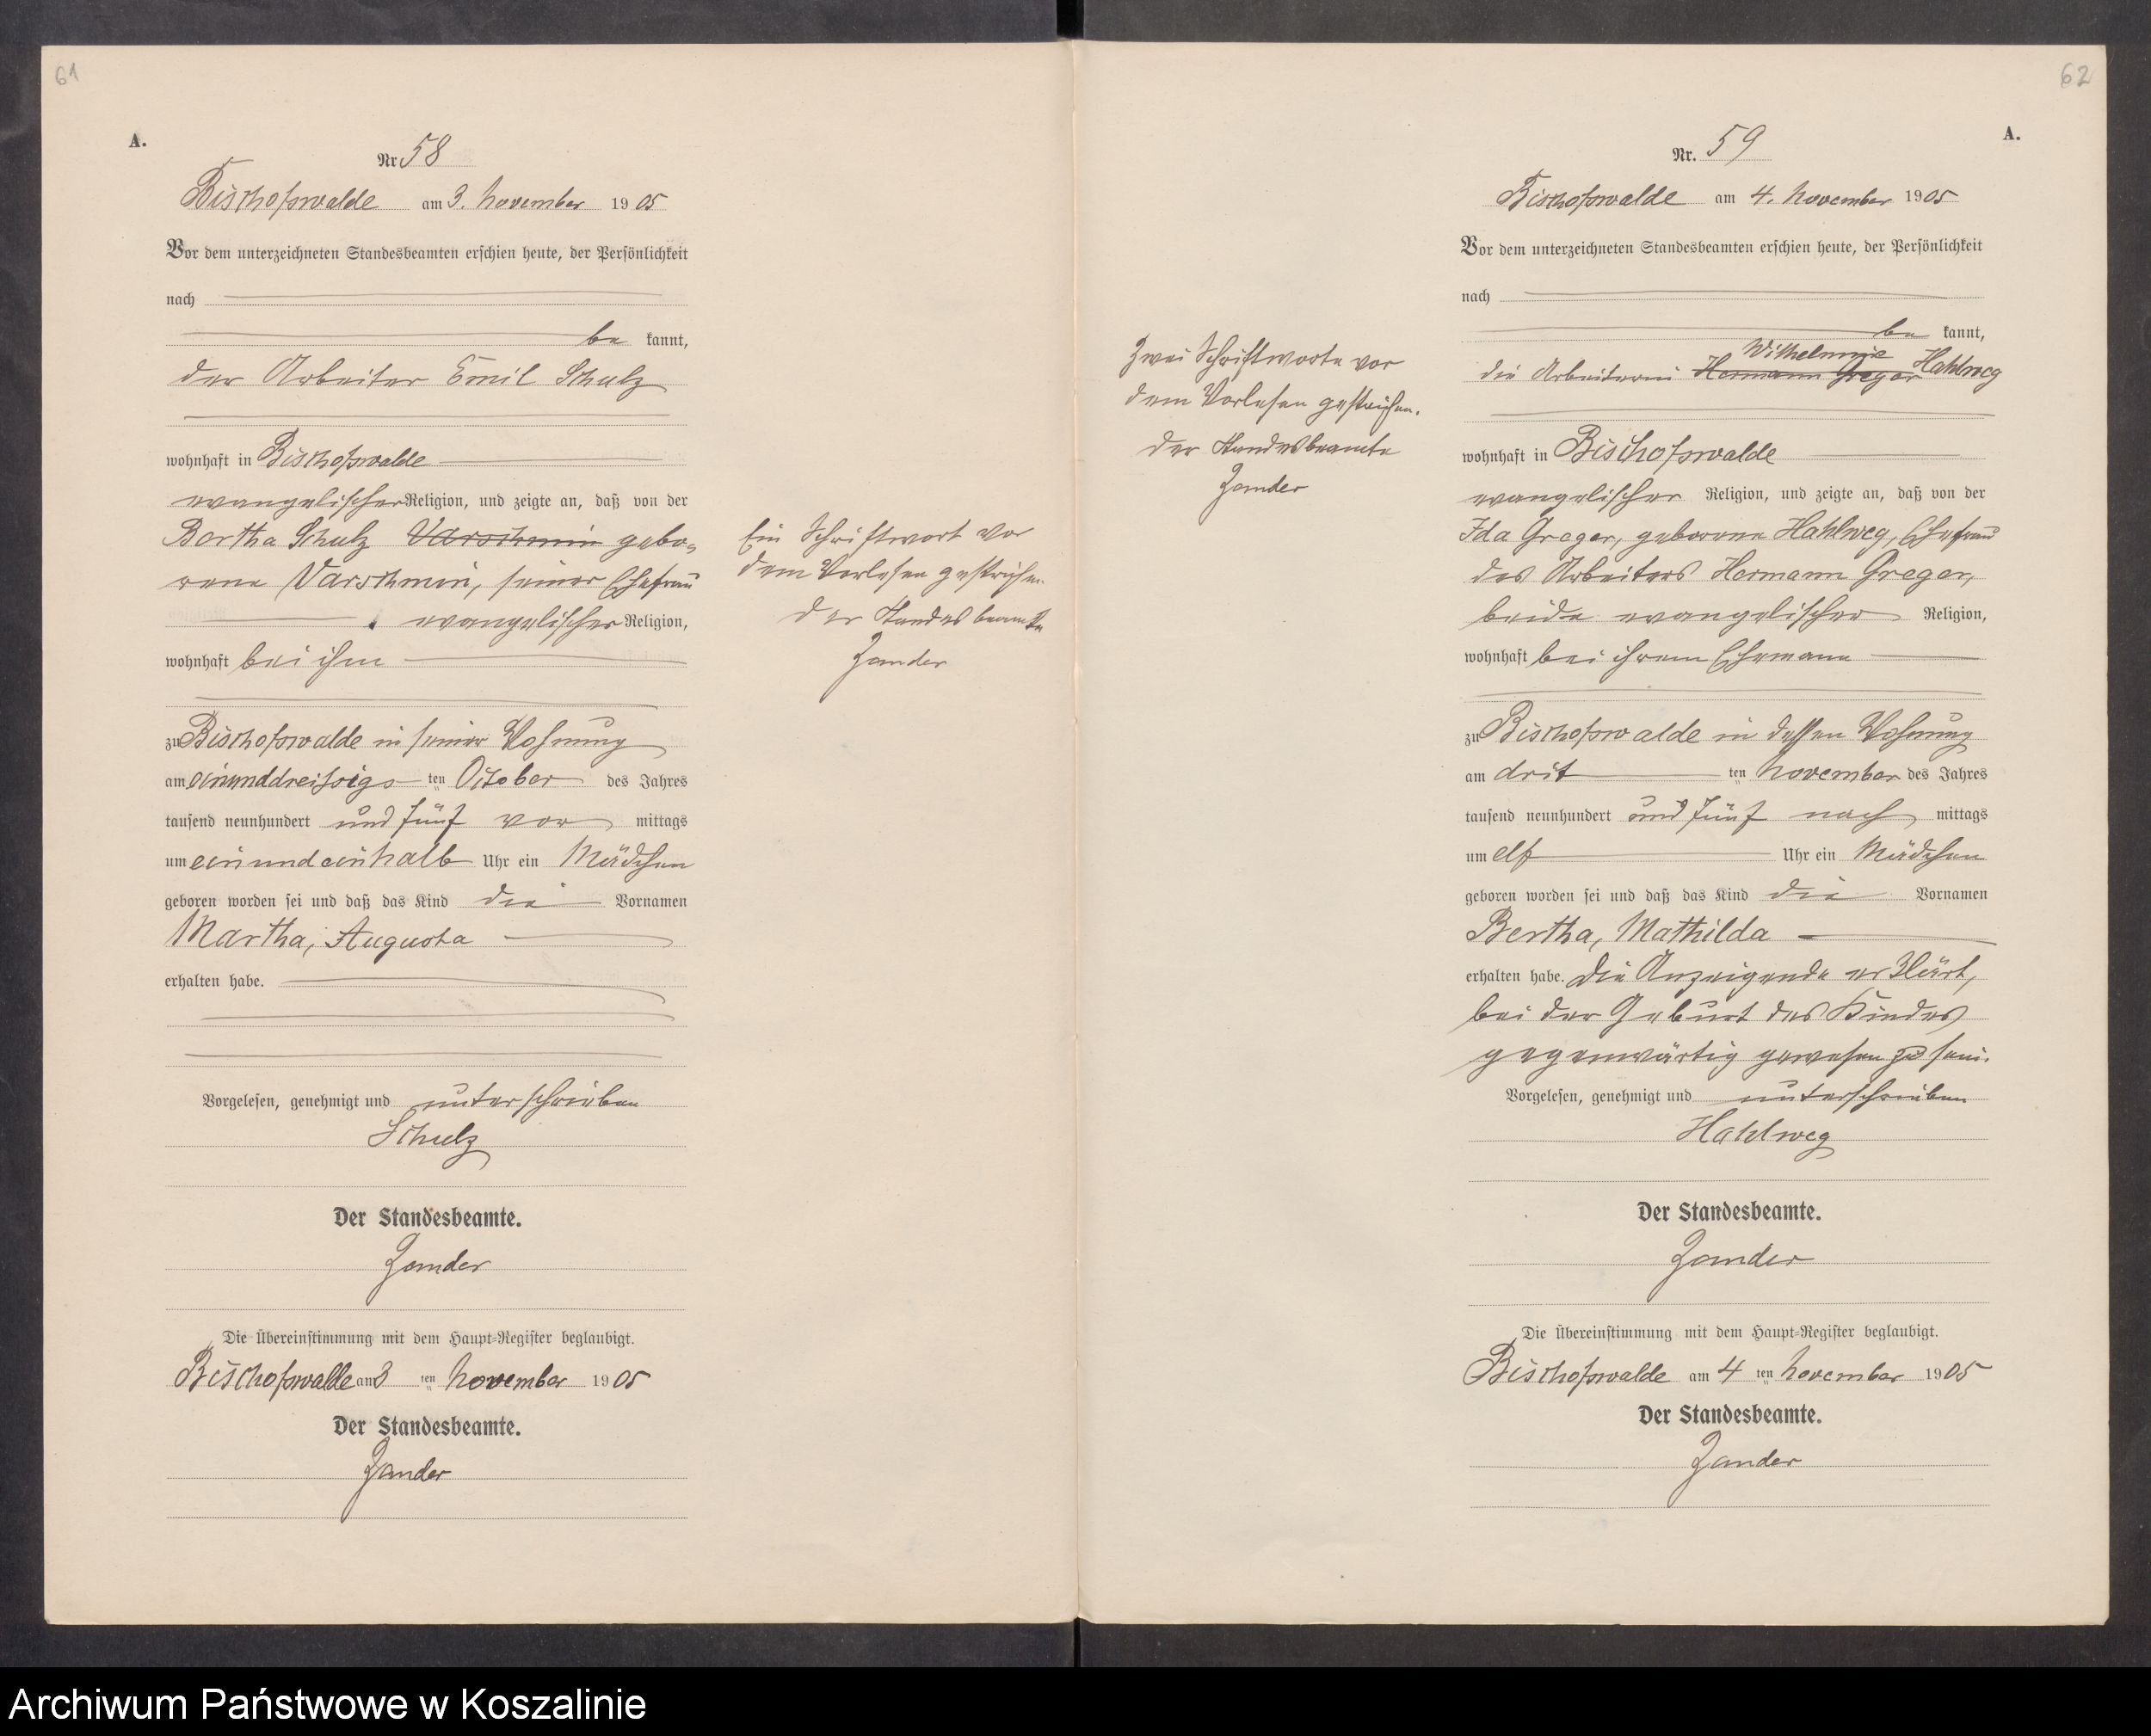 61
A.
Nr 58
Bischofswalde am 3. November 1905
Vor dem unterzeichneten Standesbeamten erschien heute, der Persönlichkeit
nach
be kannt,
der Arbeiter Emil Schulz
wohnhaft in Bischofswalde
evangelischer Religion, und zeigte an, daß von der
Bertha Schulz Varschmin gebo-
rene Varschmin, seiner Ehefrau
evangelischer Religion,
wohnhaft bei ihm
zu Bischofswalde in seiner Wohnung
am einunddreissigsten October des Jahres
tausend neunhundert und fünf vor mittags
um ein und einhalb Uhr ein Mädchen
geboren worden sei und daß das Kind die Vornamen
Martha, Augusta
erhalten habe.
Vorgelesen, genehmigt und unterschrieben
Schulz
Der Standesbeamte.
Zander
Die Übereinstimmung mit dem Haupt-Register beglaubigt.
Bischofswalde am 3 ten November 1905
Der Standesbeamte.
Zander
Ein Schriftwort vor
dem Vorlesen gestrichen.
Der Standesbeamte
Zander
62
A.
Nr. 59
Bischofswalde am 4. November 1905
Vor dem unterzeichneten Standesbeamten erschien heute, der Persönlichkeit
nach
be kannt,
Wilhelmine
die Arbeiterin Hermann Greger Hahlweg
wohnhaft in Bischofswalde
evangelischer Religion, und zeigte an, daß von der
Ida Greger, geborene Hahlweg, Ehefrau
des Arbeiters Hermann Greger,
beide evangelischer Religion,
wohnhaft bei ihrem Ehemann
zu Bischofswalde in dessen Wohnung
am drit ten November des Jahres
tausend neunhundert und fünf nach mittags
um elf Uhr ein Mädchen
geboren worden sei und daß das Kind die Vornamen
Bertha, Mathilda
erhalten habe. Die Anzeigende erklärt,
bei der Geburt des Kindes
gegenwärtig gewesen zu sein.
Vorgelesen, genehmigt und unterschrieben
Hahlweg
Der Standesbeamte.
Zander
Die Übereinstimmung mit dem Haupt-Register beglaubigt.
Bischofswalde am 4 ten November 1905
Der Standesbeamte.
Zander
Zwei Schriftworte vor
dem Vorlesen gestrichen.
Der Standesbeamte
Zander
Archiwum Państwowe w Koszalinie